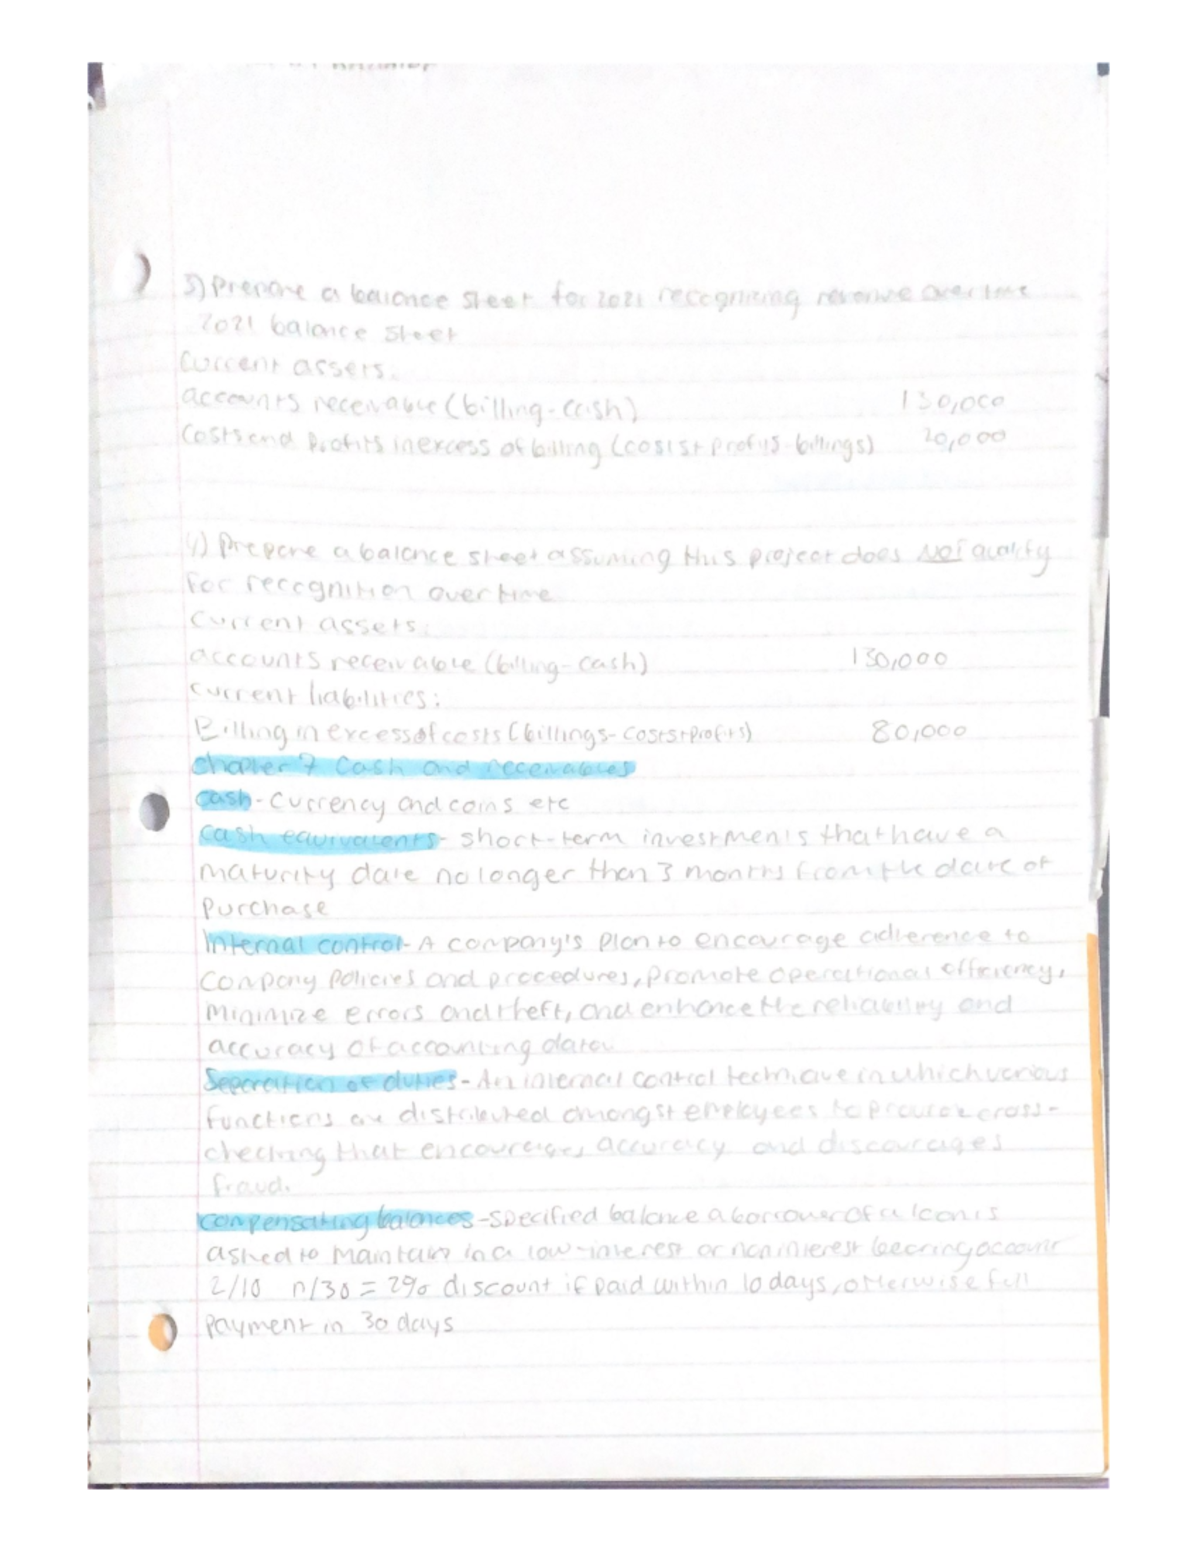 3) Prepare a balance sheet for 2021 recognizing revenue over time
2021 balance sheet
Current assets:
accounts receivable (billing-cash) 130,000
Costs and profits in excess of billing (costs + profits-billings) 20,000
4) Prepare a balance sheet assuming this project does NOT qualify
for recognition over time
Current assets:
accounts receivable (billing-cash) 130,000
current liabilities:
Billing in excess of costs (billings-costs+profits) 80,000
chapter 7 Cash and receivables
Cash- Currency and coins etc
Cash equivalents- short-term investments that have a
maturity date no longer than 3 months from the date of
purchase
Internal control- A company's plan to encourage adherence to
company policies and procedures, promote operational efficiency,
minimize errors and theft, and enhance the reliability and
accuracy of accounting data.
Separation of duties- An internal control technique in which various
functions are distributed amongst employees to provide cross-
checking that encourages accuracy and discourages
fraud.
compensating balances-specified balance a borrower of a loan is
asked to maintain in a low-interest or noninterest bearing account
2/10 n/30 = 2% discount if paid within 10 days, otherwise full
payment in 30 days